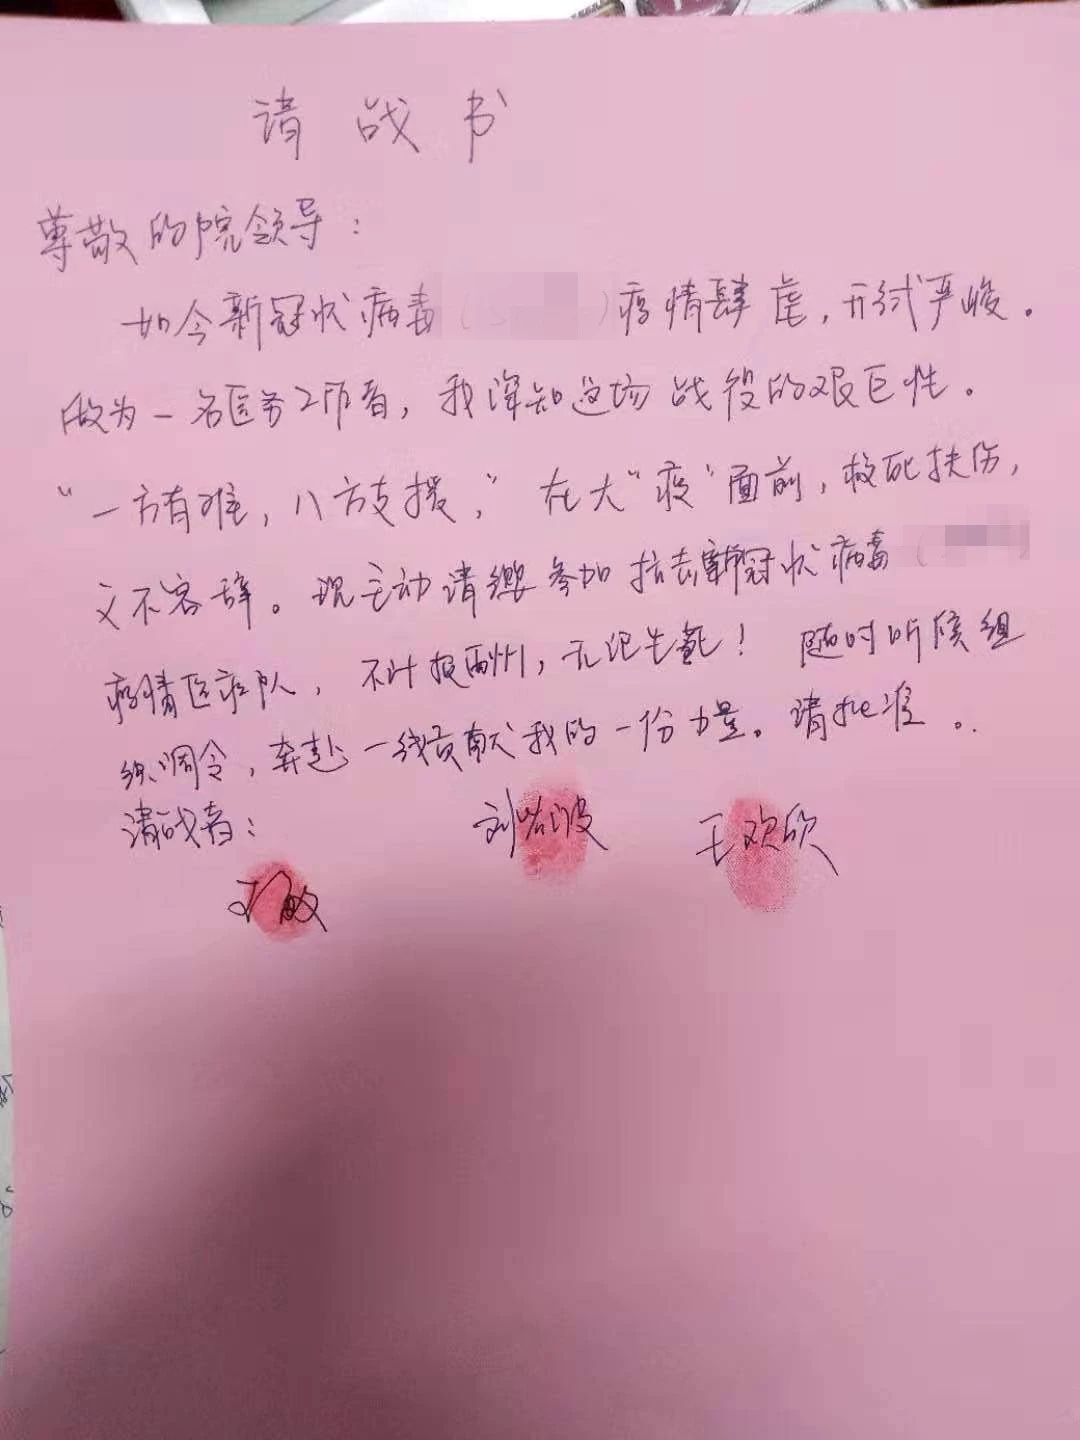 请战书
尊敬的院领导：
如今新冠状病毒( )疫情肆虐，形式严峻。
做为一名医务工作者，我深知这场战役的艰巨性。
“一方有难，八方支援，”在大“疫”面前，救死扶伤，
义不容辞。现主动请缨参加抗击新冠状病毒( )
疫情医疗队，不计报酬，无论生死！随时听候组
织调令，奔赴一线贡献我的一份力量。请批准。
请战者： 刘 波 王欢欣
敏